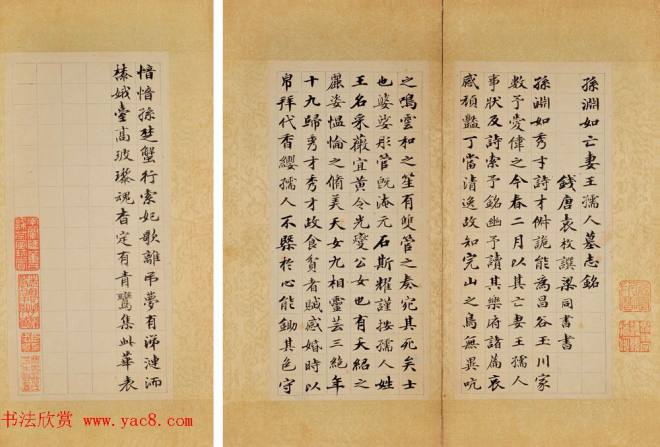 孫淵如亡妻王孺人墓志銘
錢唐袁枚譔梁同書書
孫淵如秀才詩才俶詭能為昌谷玉川家
數予愛偉之今春二月以其亡妻王孺人
事狀及詩索予銘幽予讀其樂府諸篇哀
感頑豔丁當清逸故知完山之鳥無異吭
之鳴雲和之笙有雙管之奏宛其死矣士
也婆娑彤管既淹元石斯耀謹按孺人姓
王名采薇宜黃令光燮公女也有夭紹之
麗姿愠愉之脩美天女九相靈芸三絕年
十九歸秀才秀才故食貧者贓感婚時以
帛拜代香纓孺人不槩於心能鋤其色守
愔愔孫楚蟹行索妃歌離弔夢有涕漣洏
榛娥臺高玻瓈魂香定有青鸞集此華表
书法欣赏 www.yac8.com